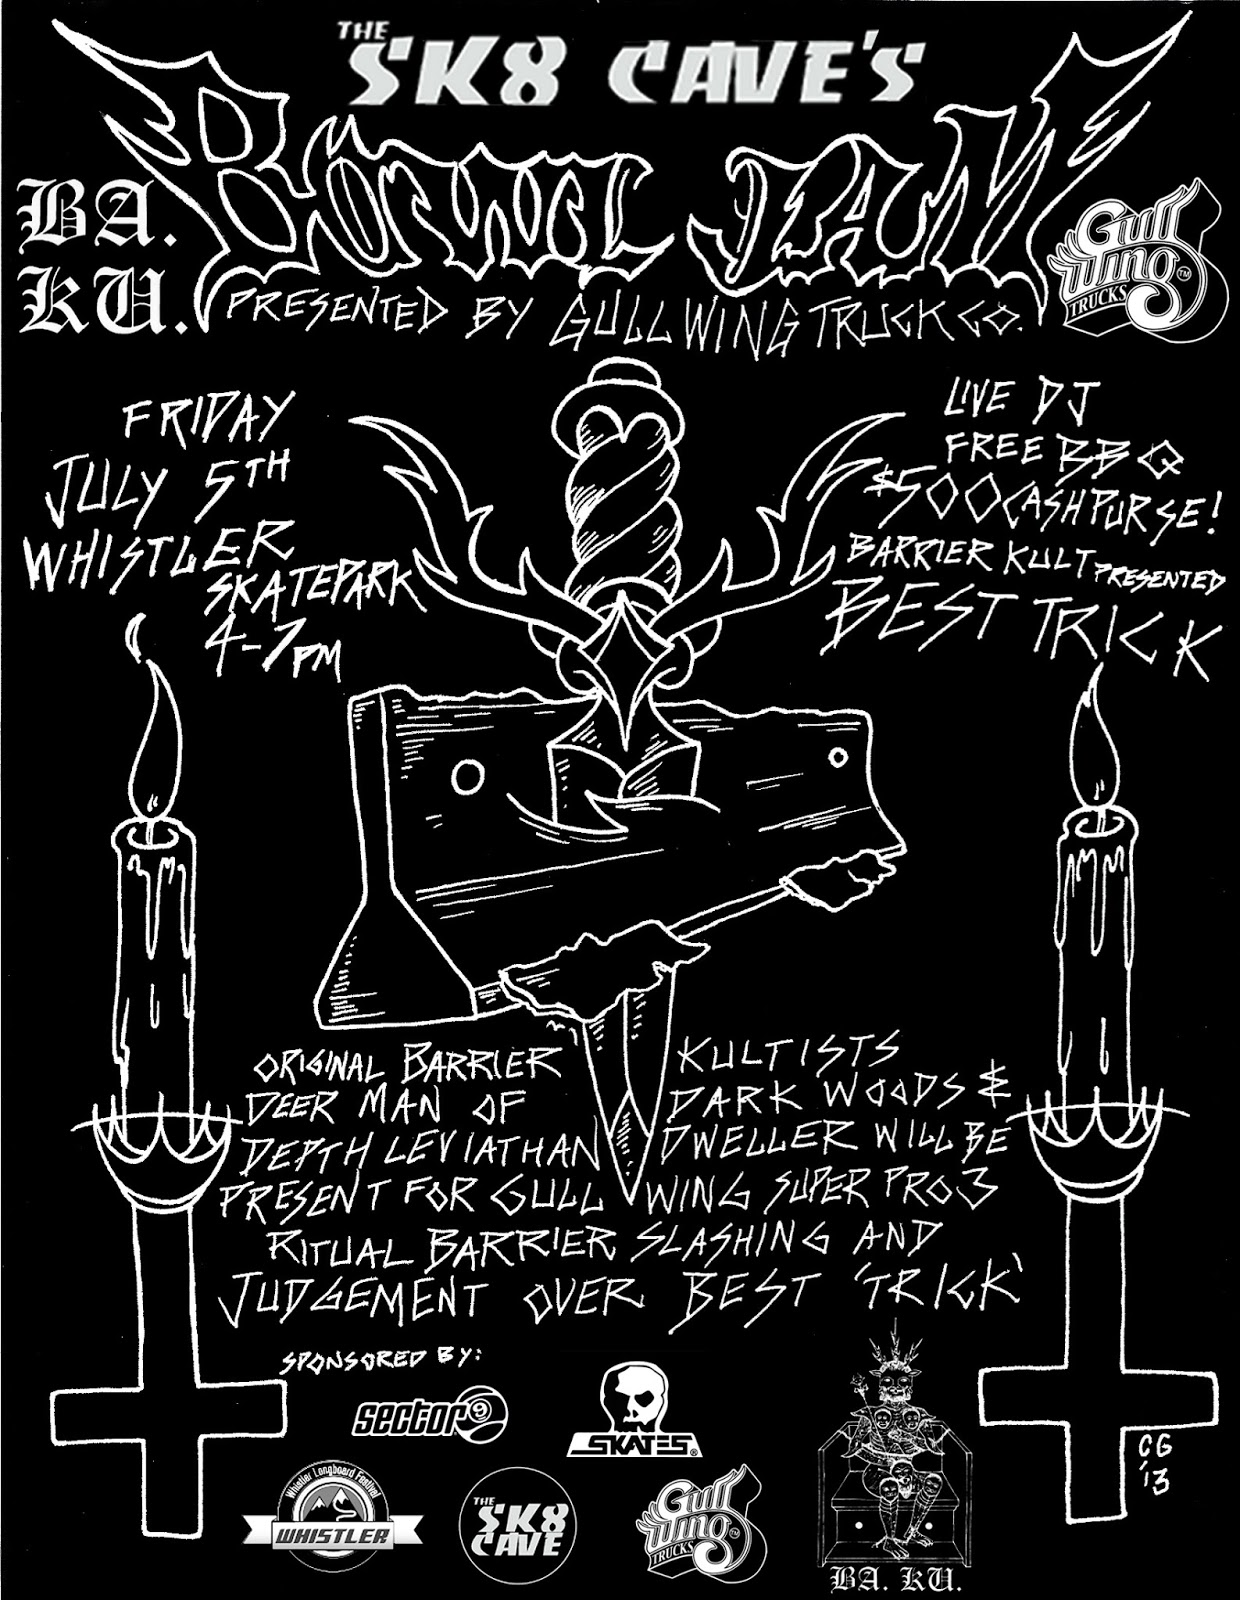 THE
SK8 CAVE'S
BÖWL JAM
BA.
KU.
Gull
Wing TM
TRUCKS
PRESENTED BY GULLWING TRUCK CO.
FRIDAY
JULY 5TH
WHISTLER
SKATEPARK
4-7PM
LIVE DJ
FREE BBQ
$500 CASH PURSE!
BARRIER KULT PRESENTED
BEST TRICK
ORIGINAL BARRIER KULTISTS
DEER MAN OF DARK WOODS &
DEPTH LEVIATHAN DWELLER WILL BE
PRESENT FOR GULL WING SUPER PRO 3
RITUAL BARRIER SLASHING AND
JUDGEMENT OVER BEST 'TRICK'
SPONSORED BY:
sector 9
SKATES ®
CG
'13
Whistler Longboard Festival
WHISTLER
THE
SK8
CAVE
Gull
Wing TM
TRUCKS
BA. KU.